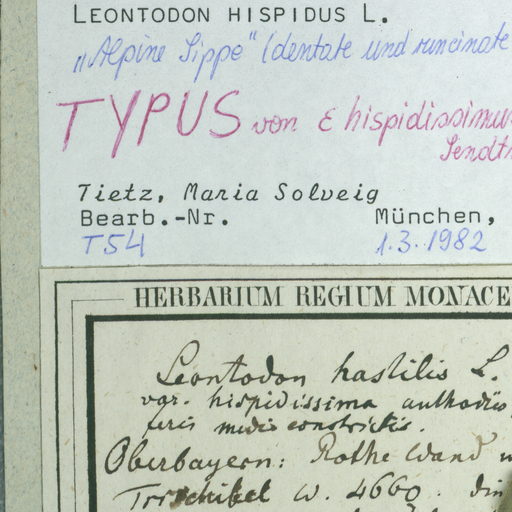 LEONTODON HISPIDUS L.
„Alpine Sippe" (dentate und runcinate
TYPUS von ε hispidissimu
Sendt
Tietz, Maria Solveig
Bearb.-Nr. München,
T54 1.3.1982
HERBARIUM REGIUM MONACE
Leontodon hastilis L.
var. hispidissima
medio constrictis.
Oberbayern: Rothe Wand
W. 4660.